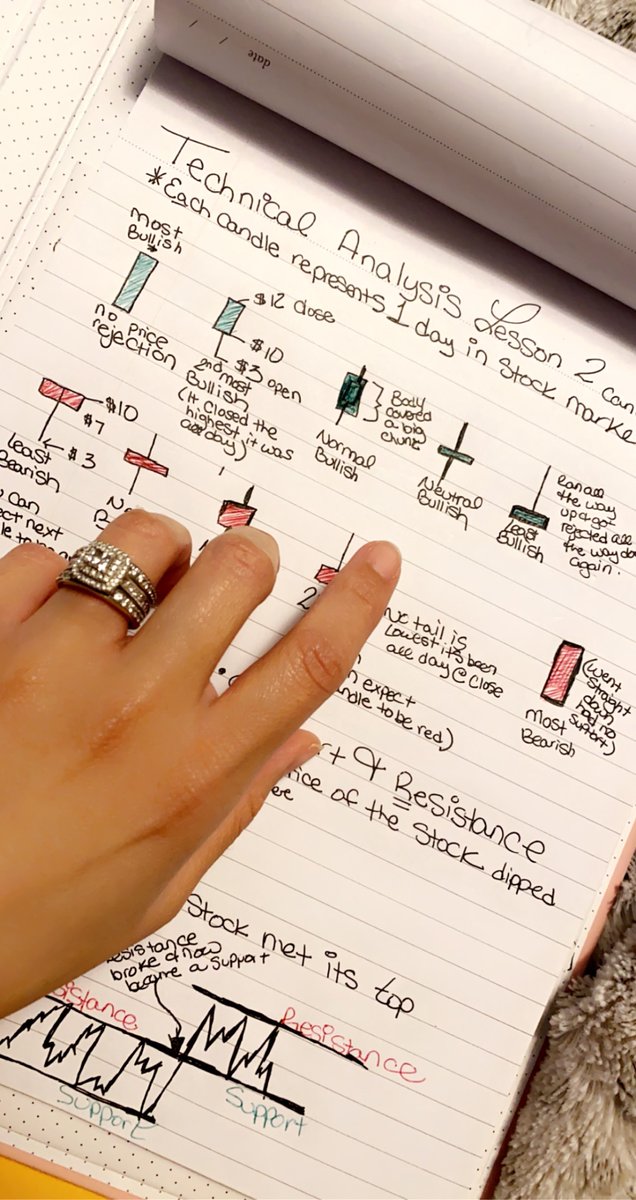 date
Technical Analysis Lesson 2 can
*Each candle represents 1 day in stock marke
most
Bullish
no price
rejection
$12 close
$10
$3 open
2nd most
Bullish
(It closed the
highest it was
all day)
Body
covered
a big
chunk
Normal
Bullish
Neutral
Bullish
Least
Bullish
Ran all
the way
up & got
rejected all
the way do
again.
$10
$7
$3
least
Bearish
can
ect next
le to be
N
2
tail is
lowest its been
all day @ close
n expect
ndle to be red)
Most
Bearish
(went
straight
down
had no
support)
rt & Resistance
rice of the stock dipped
ere
Stock met its top
esistance
broke & now
became a support
sistance
Support
Resistance
Support